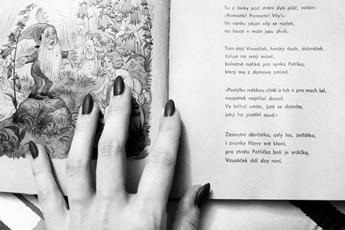 Tu z louky pod strání dýchl pláč, volání:
«Pomozte! Pomozte! Vílyl»
Ve vánku objali vily se rozletí,
na louce v mole jsou chvíli.
Tam stojí Vousáček, horský duch, dobráček,
žaluje na svoji zvizel,
bolestně naříká pro synka Petříka,
který mu z domova zmizel.
«Postýlku měkkou chtěl a tak si pro mech šel,
nazpátek nepřišel dosud.
Vy bělhat umíte, jistě se dozvíte,
jaký ho postihl osud.»
Zesmutní děvčátka, celý les, zvířátka,
i zvonky hlavy své kloní,
pro ztrátu Petříčka bolí je srdíčka,
Vousáček dál slzy roní.